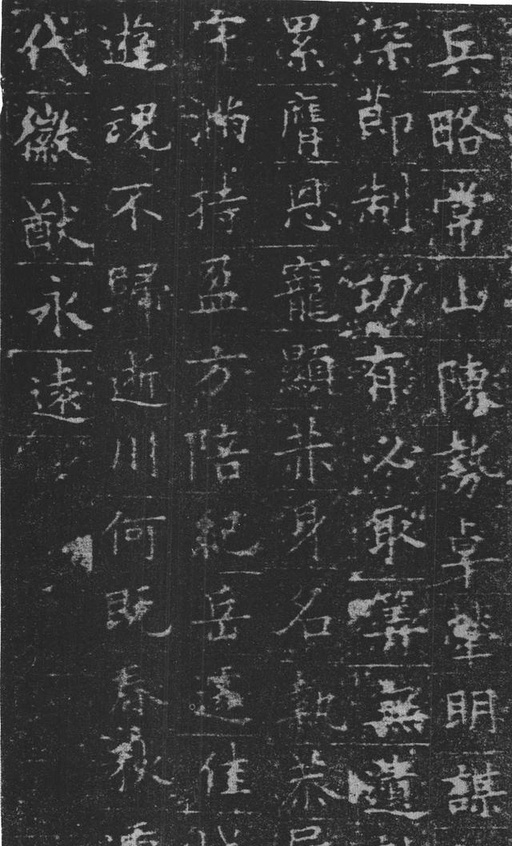 兵略常山陳勢卓塋明謀
深節制切有必取筭無遺
累膺恩寵顯赤身名執恭
牢滿待盈方陪紀岳遽佳
遊魂不歸逝川何既春秋
代徽猷永遠